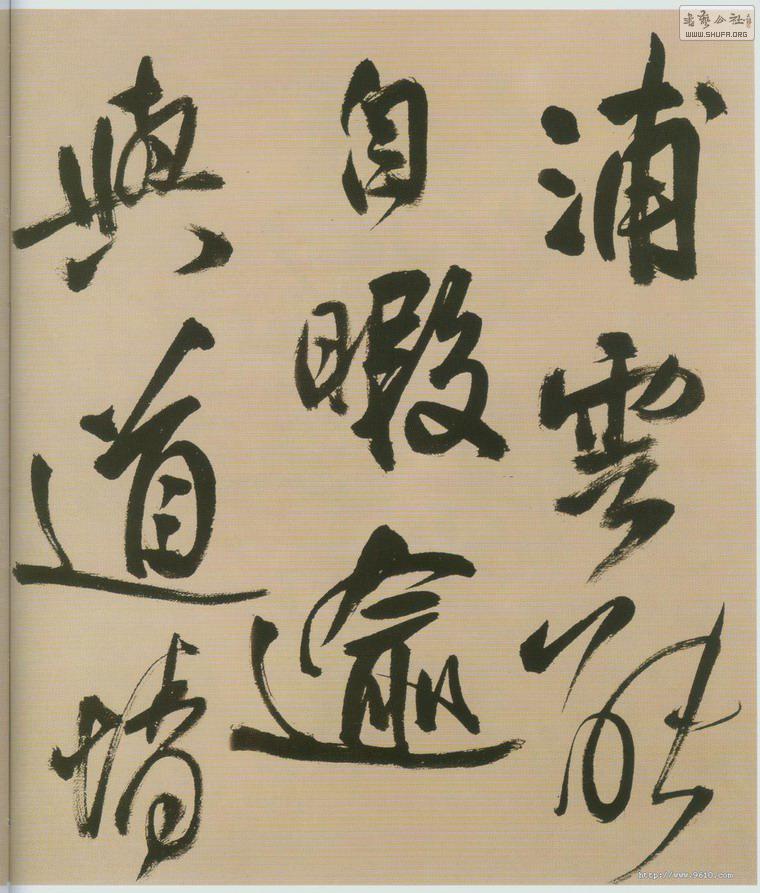 浦雲能
自暇逾
與道情
書藝公社
WWW.SHUFA.ORG
http://www.9610.com